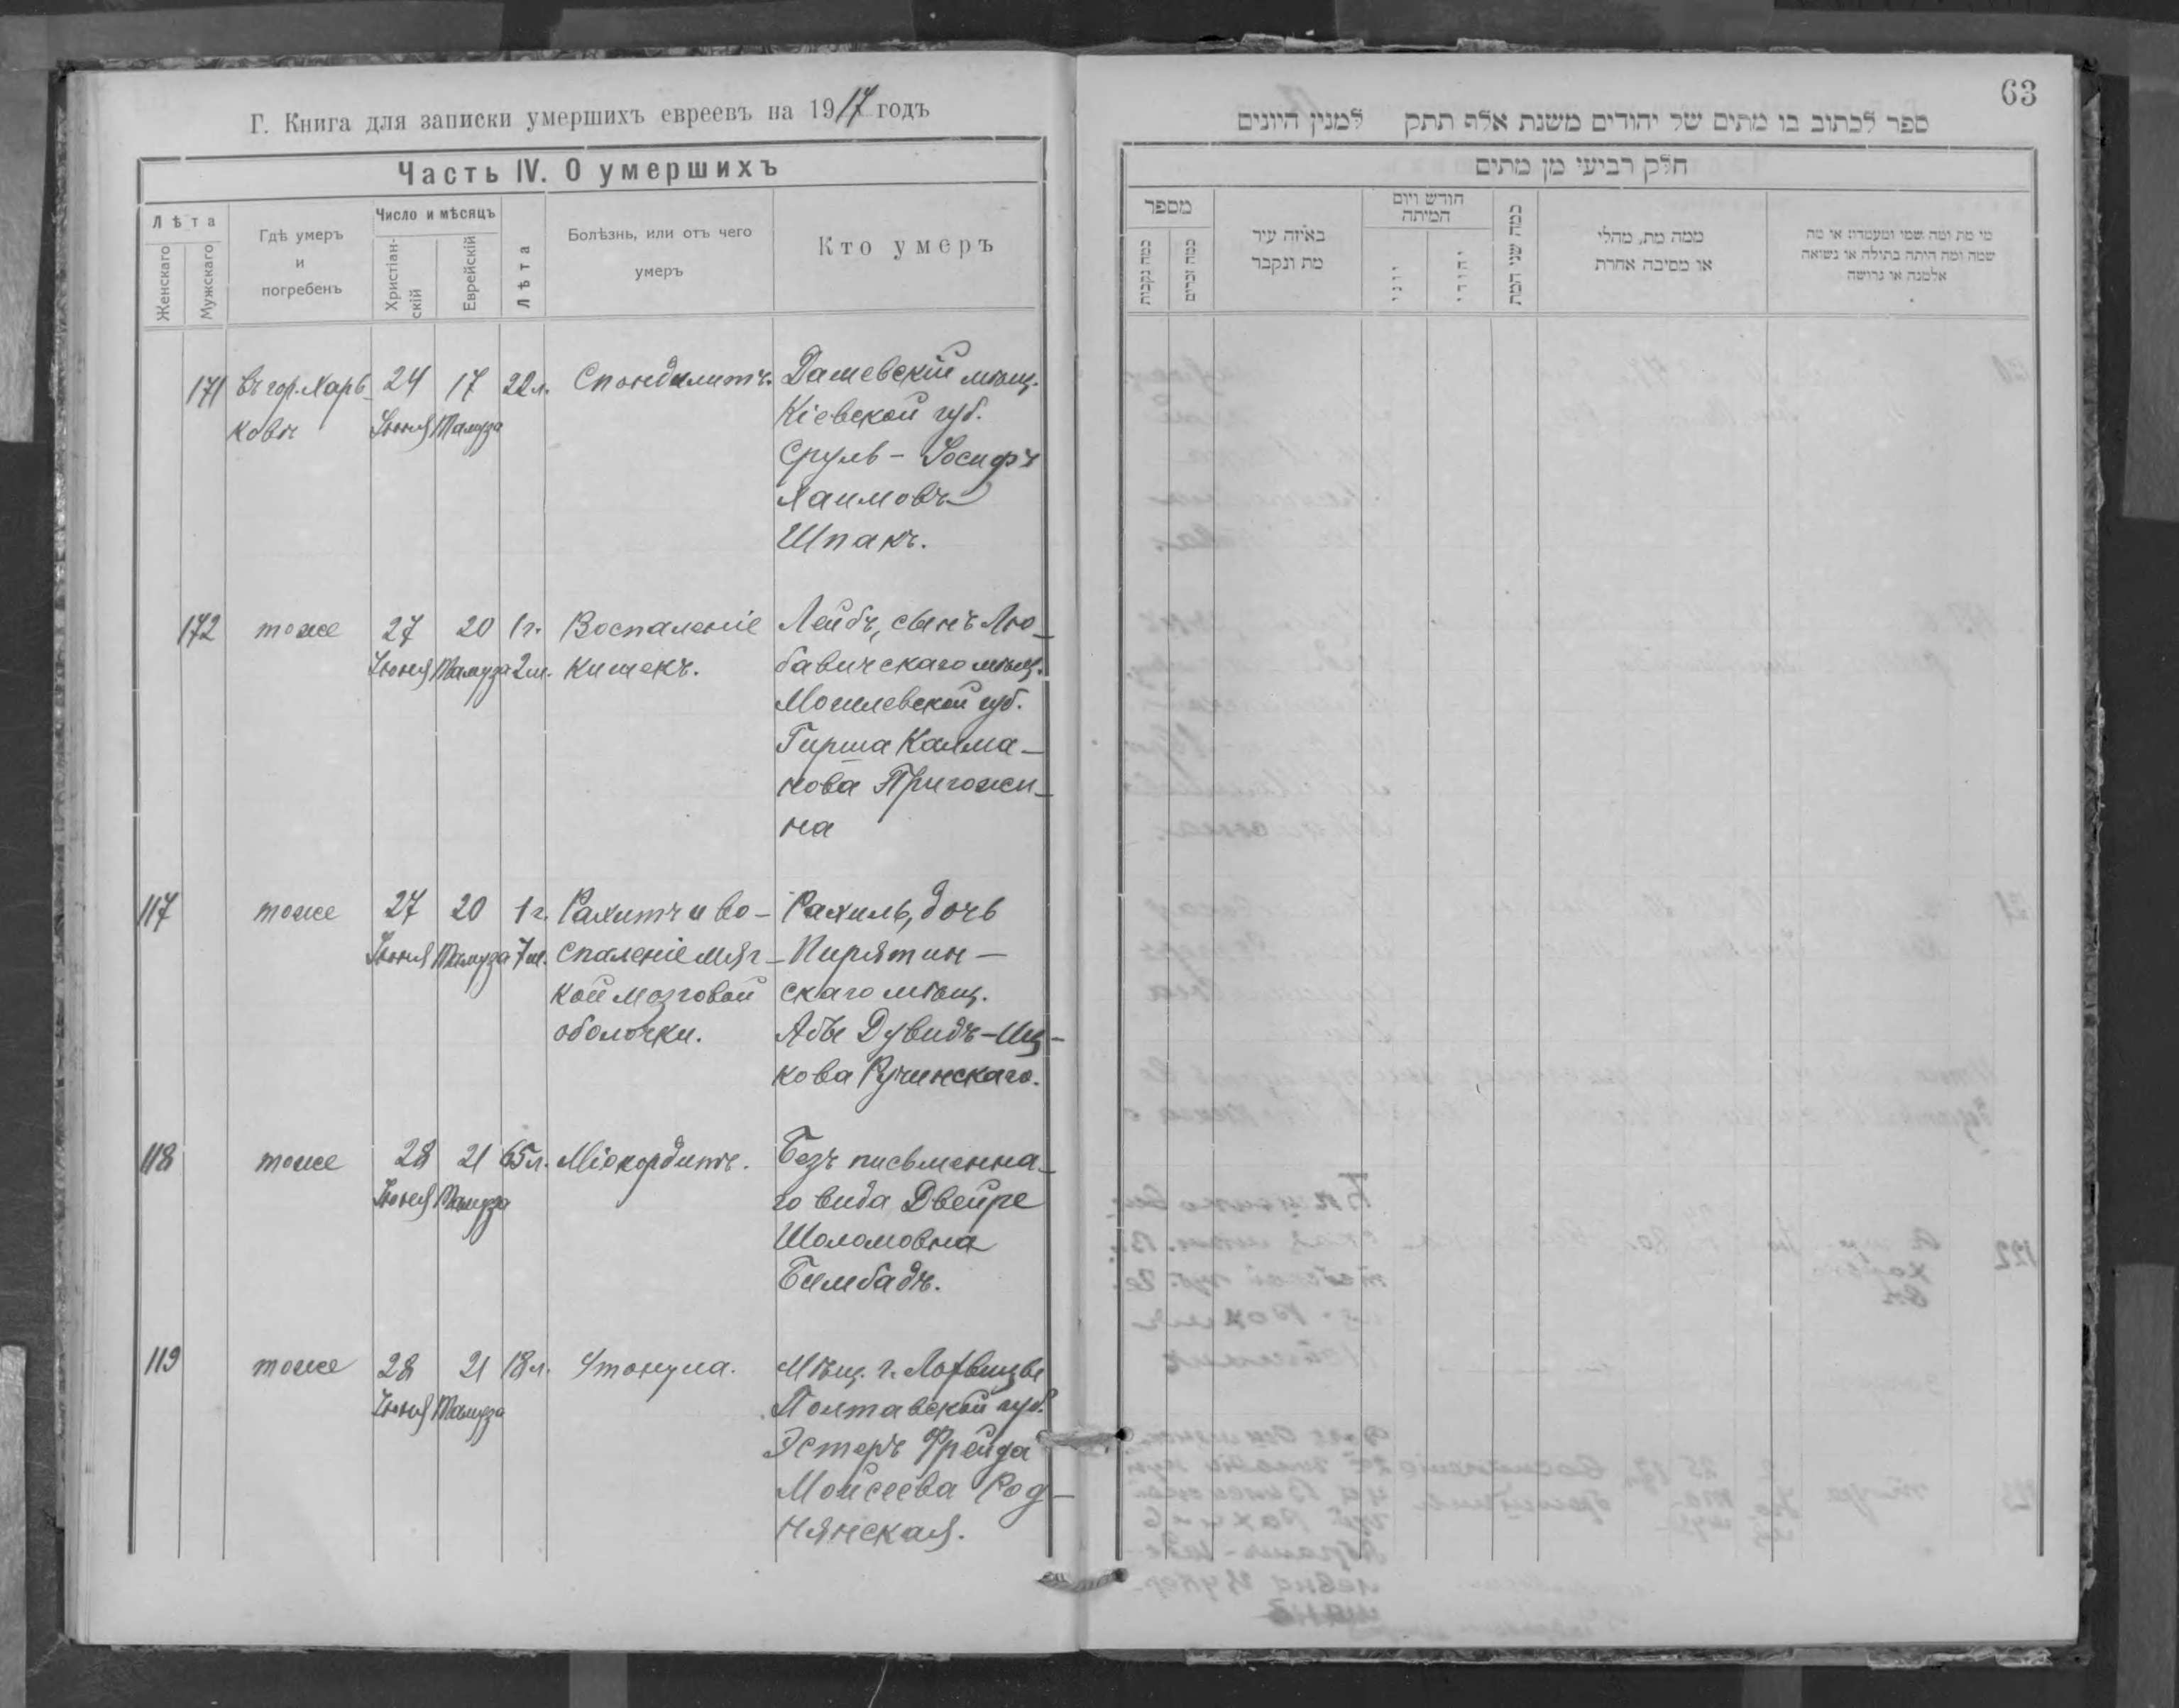 Г. Книга для записки умершихъ евреевъ на 1917 годъ
Часть IV. О умершихъ
Лѣта
Женскаго
Мужскаго
Гдѣ умеръ
и
погребенъ
Число и мѣсяцъ
Христіан-
скій
Еврейскій
Лѣта
Болѣзнь, или отъ чего
умеръ
Кто умеръ
171 въ гор. Харь- 24 17 22 л. Спондилитъ. Дашевскій мѣщ.
ковѣ Іюня Тамуза Кіевской губ.
Сруль - Іосифъ
Хаимовъ
Шпакъ.
172 тоже 27 20 1 г. Воспаленіе Лейбъ, сынъ Лю-
Іюня Тамуза 2 м. кишекъ. бавичскаго мѣщ.
Могилевской губ.
Гирша Калма-
нова Пригожи-
на
117 тоже 27 20 1 г. Рахитъ и во- Рахиль, дочь
Іюня Тамуза 7 м. спаленіе мяг- Пирятин-
кой мозговой скаго мѣщ.
оболочки. Абы Дувидъ-Иц-
кова Ручинскаго.
118 тоже 28 21 65 л. Міокордитъ. Безъ письменна-
Іюня Тамуза го вида Двейре
Шоломовна
Бимбадъ.
119 тоже 28 21 18 л. Утонула. Мѣщ. г. Лохвицы
Іюня Тамуза Полтавской губ.
Эстеръ Фрейда
Моисеева Род-
нянская.
63
ספר לכתוב בו מתים של יהודים משנת אלף תתק למנין היונים
חלק רביעי מן מתים
מספר
כמה נקבות
כמה זכרים
באיזה עיר
מת ונקבר
חודש ויום
המיתה
יוני
יהודי
כמה שני המת
ממה מת, מחלי
או מסיבה אחרת
מי מת ומה שמו ומעמדו: או מה
שמה ומה היתה בתולה או נשואה
אלמנה או גרושה